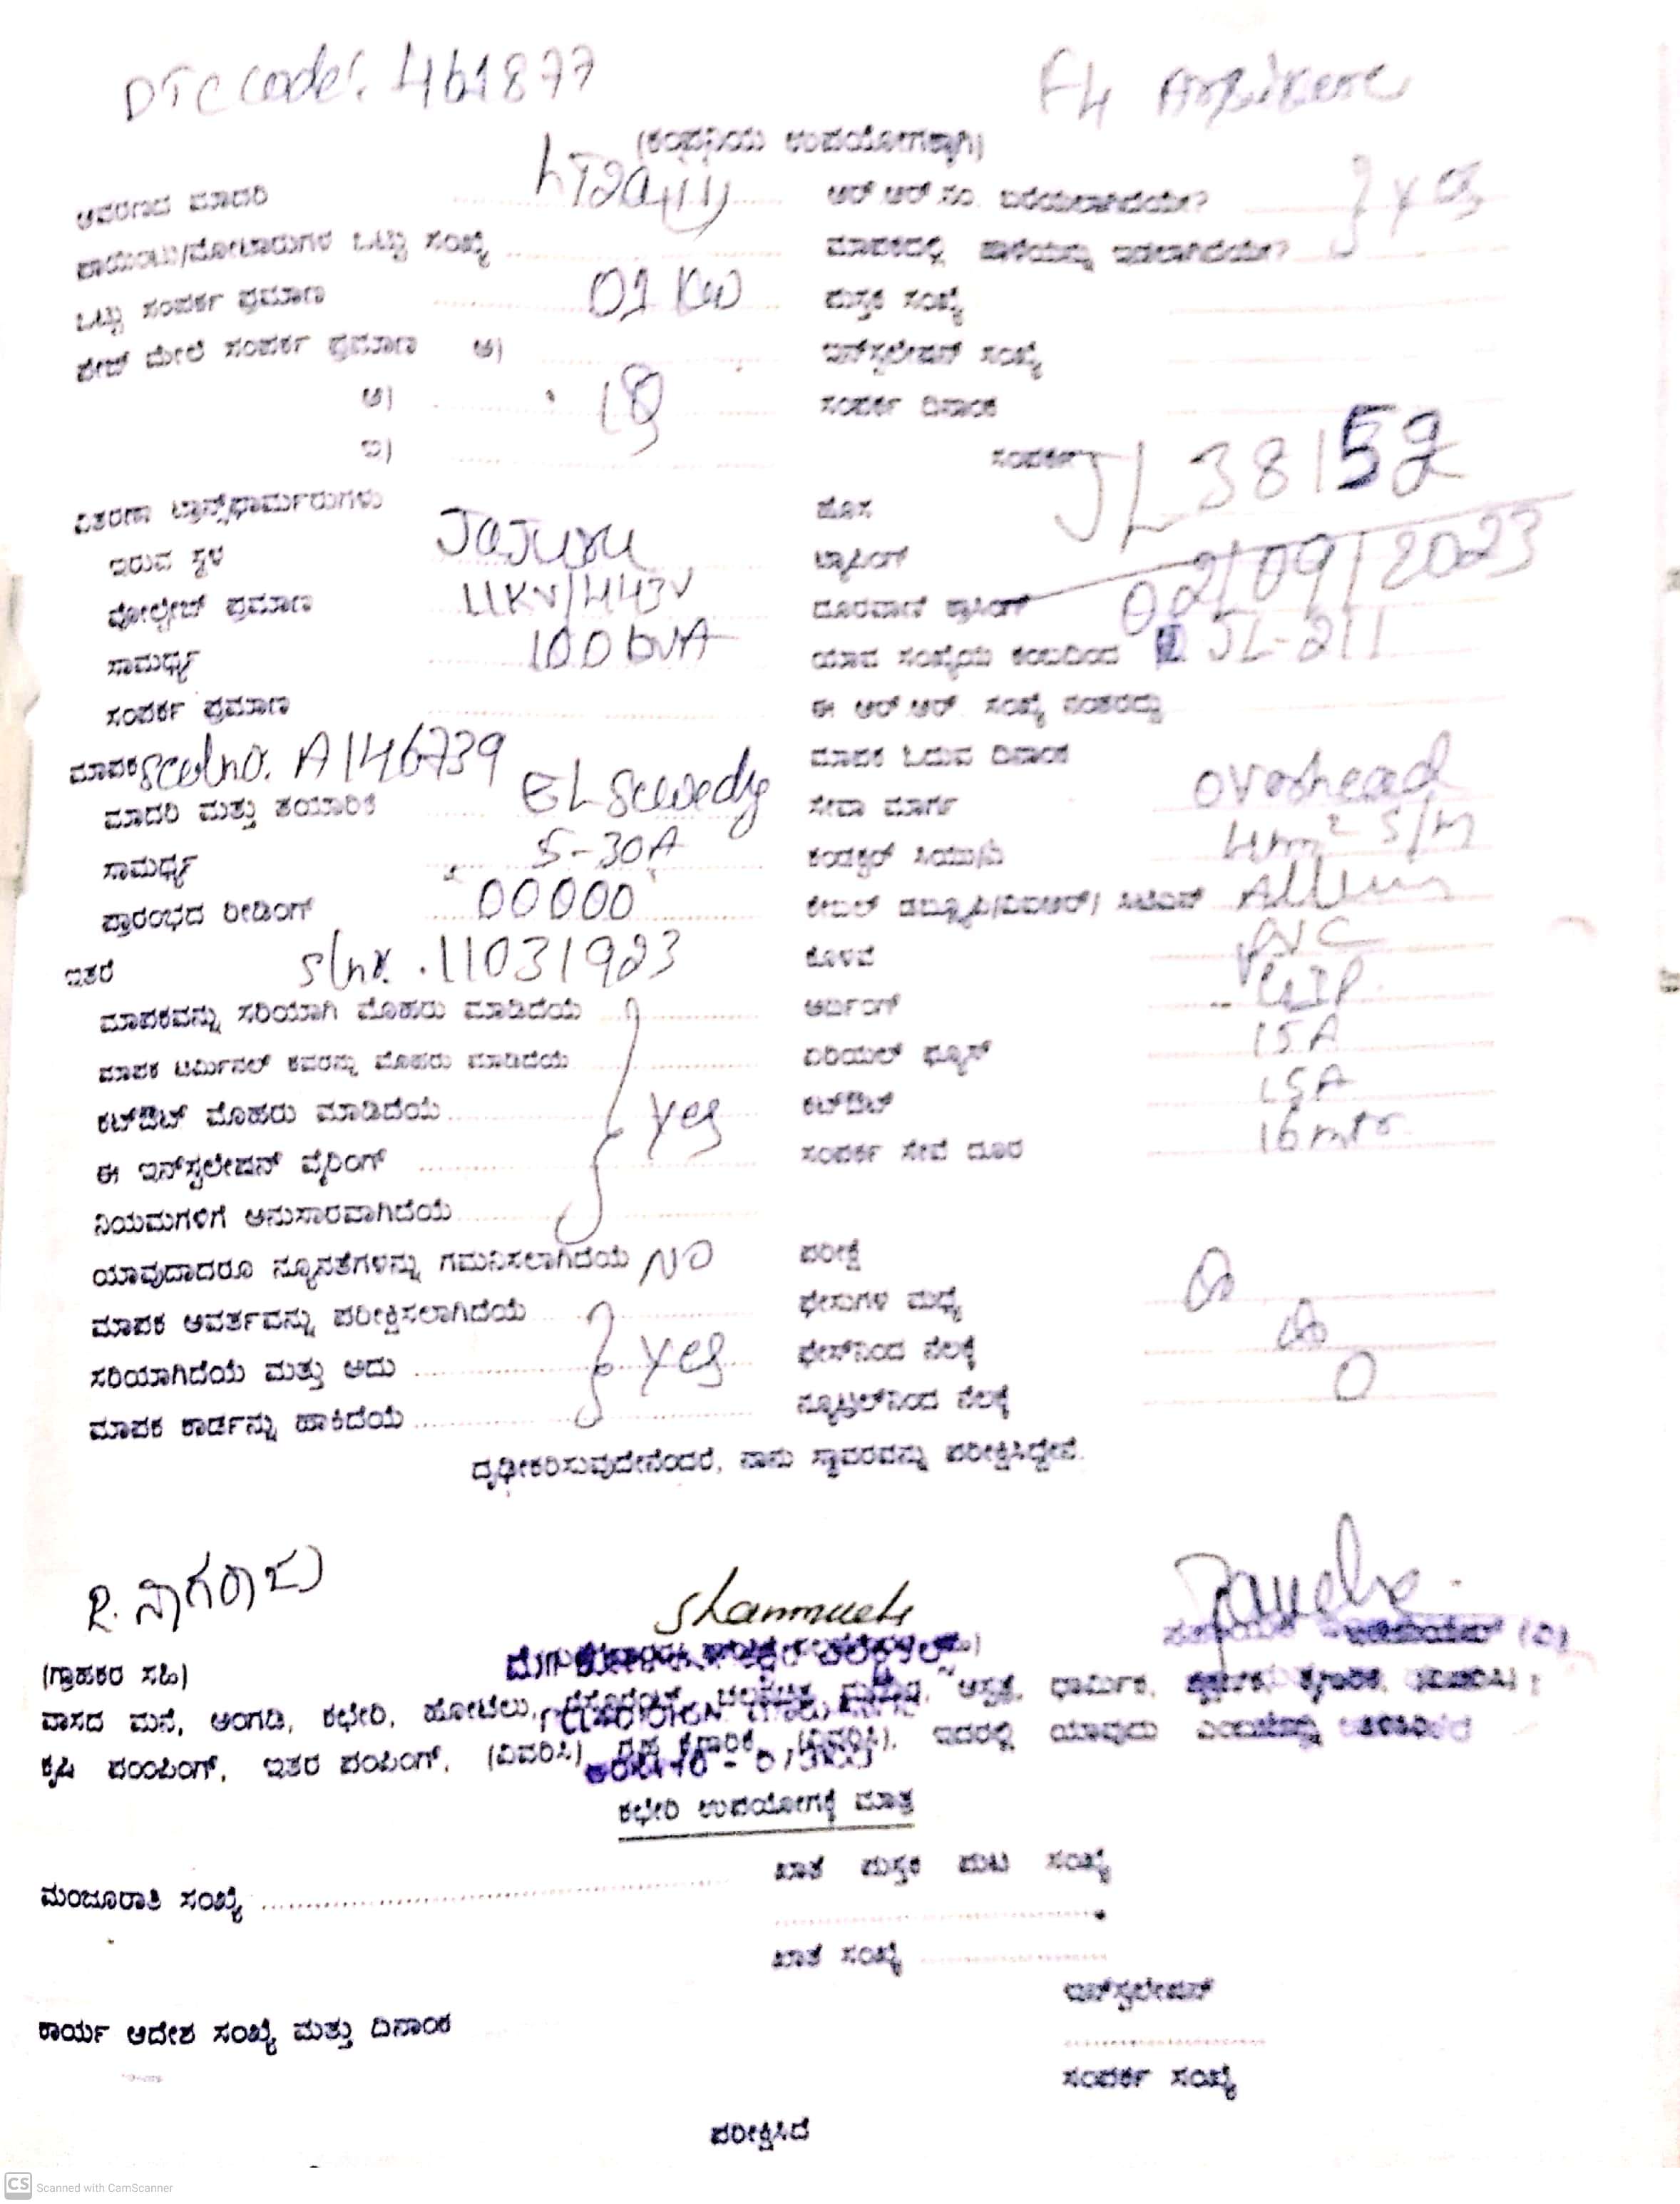 DTC code: 461877
F4 Arsikere
(ಕಂಪನಿಯ ಉಪಯೋಗಕ್ಕಾಗಿ)
ಆವರಣದ ಮಾದರಿ LT2a(ii)
ಪಾಯಿಂಟು/ಮೋಟಾರುಗಳ ಒಟ್ಟು ಸಂಖ್ಯೆ
ಒಟ್ಟು ಸಂಪರ್ಕ ಪ್ರಮಾಣ 01 KW
ಪೇಜ್ ಮೇಲೆ ಸಂಪರ್ಕ ಪ್ರಮಾಣ ಅ)
ಆ) 18
ಇ)
ವಿತರಣಾ ಟ್ರಾನ್ಸ್‌ಫಾರ್ಮರುಗಳು
ಇರುವ ಸ್ಥಳ Jajuru
ವೋಲ್ಟೇಜ್ ಪ್ರಮಾಣ 11KV/443V
ಸಾಮರ್ಥ್ಯ 100 kVA
ಸಂಪರ್ಕ ಪ್ರಮಾಣ
ಮಾಪಕ seal no. A146739
ಮಾದರಿ ಮತ್ತು ತಯಾರಿಕೆ EL Sewedy
ಸಾಮರ್ಥ್ಯ 5-30A
ಪ್ರಾರಂಭದ ರೀಡಿಂಗ್ 00000
ಇತರೆ slno. 11031923
ಮಾಪಕವನ್ನು ಸರಿಯಾಗಿ ಮೊಹರು ಮಾಡಿದೆಯೆ
ಮಾಪಕ ಟರ್ಮಿನಲ್ ಕವರನ್ನು ಮೊಹರು ಮಾಡಿದೆಯೆ
ಕಟ್‌ಔಟ್ ಮೊಹರು ಮಾಡಿದೆಯೆ yes
ಈ ಇನ್‌ಸ್ಟಲೇಷನ್ ವೈರಿಂಗ್
ನಿಯಮಗಳಿಗೆ ಅನುಸಾರವಾಗಿದೆಯೆ
ಯಾವುದಾದರೂ ನ್ಯೂನತೆಗಳನ್ನು ಗಮನಿಸಲಾಗಿದೆಯೆ NO
ಮಾಪಕ ಆವರ್ತವನ್ನು ಪರೀಕ್ಷಿಸಲಾಗಿದೆಯೆ
ಸರಿಯಾಗಿದೆಯೆ ಮತ್ತು ಅದು yes
ಮಾಪಕ ಕಾರ್ಡನ್ನು ಹಾಕಿದೆಯೆ
ಆರ್.ಆರ್.ಸಂ. ಬರೆಯಲಾಗಿದೆಯೇ? yes
ಮಾಪಕದಲ್ಲಿ ಹಾಳೆಯನ್ನು ಇಡಲಾಗಿದೆಯೇ?
ಪುಸ್ತಕ ಸಂಖ್ಯೆ
ಇನ್‌ಸ್ಟಲೇಷನ್ ಸಂಖ್ಯೆ
ಸಂಪರ್ಕ ದಿನಾಂಕ
ಸಂಪರ್ಕ JL 38152
ಹೊಸ
ಟ್ಯಾಪಿಂಗ್
ದೂರವಾಣಿ ಕ್ರಾಸಿಂಗ್ 02/09/2023
ಯಾವ ಸಂಖ್ಯೆಯ ಕಂಬದಿಂದ JL-211
ಈ ಆರ್.ಆರ್. ಸಂಖ್ಯೆ ನಂತರದ್ದು
ಮಾಪಕ ಓದುವ ದಿನಾಂಕ
ಸೇವಾ ಮಾರ್ಗ overhead
ಕಂಡಕ್ಟರ್ ಸಿಯು/ಎ
ಕೇಬಲ್
ಕೊಳವೆ PVC
ಅರ್ಥಿಂಗ್
ಏರಿಯಲ್ ಫ್ಯೂಸ್ 15A
ಕಟ್‌ಔಟ್ 15A
ಸಂಪರ್ಕ ಸೇವೆ ದೂರ 16 mtr.
ಪರೀಕ್ಷೆ
ಫೇಸುಗಳ ಮಧ್ಯೆ
ಫೇಸ್‌ನಿಂದ ನೆಲಕ್ಕೆ
ನ್ಯೂಟ್ರಲ್‌ನಿಂದ ನೆಲಕ್ಕೆ 0
ದೃಢೀಕರಿಸುವುದೇನೆಂದರೆ, ನಾನು ಸ್ಥಾವರವನ್ನು ಪರೀಕ್ಷಿಸಿದ್ದೇನೆ.
R. ನಾಗರಾಜು
(ಗ್ರಾಹಕರ ಸಹಿ)
ವಾಸದ ಮನೆ, ಅಂಗಡಿ, ಕಛೇರಿ, ಹೋಟೆಲು, ಆಸ್ಪತ್ರೆ, ಧಾರ್ಮಿಕ,
ಕೃಷಿ ಪಂಪಿಂಗ್, ಇತರ ಪಂಪಿಂಗ್, (ವಿವರಿಸಿ) ಗೃಹ ಕೈಗಾರಿಕೆ, (ವಿವರಿಸಿ), ಇದರಲ್ಲಿ ಯಾವುದು
ಕಛೇರಿ ಉಪಯೋಗಕ್ಕೆ ಮಾತ್ರ
ಖಾತೆ ಪುಸ್ತಕ ಪುಟ ಸಂಖ್ಯೆ
ಮಂಜೂರಾತಿ ಸಂಖ್ಯೆ
ಖಾತೆ ಸಂಖ್ಯೆ
ಇನ್‌ಸ್ಟಲೇಷನ್
ಕಾರ್ಯ ಆದೇಶ ಸಂಖ್ಯೆ ಮತ್ತು ದಿನಾಂಕ
ಸಂಪರ್ಕ ಸಂಖ್ಯೆ
ಪರೀಕ್ಷಿಸಿದೆ
CS Scanned with CamScanner